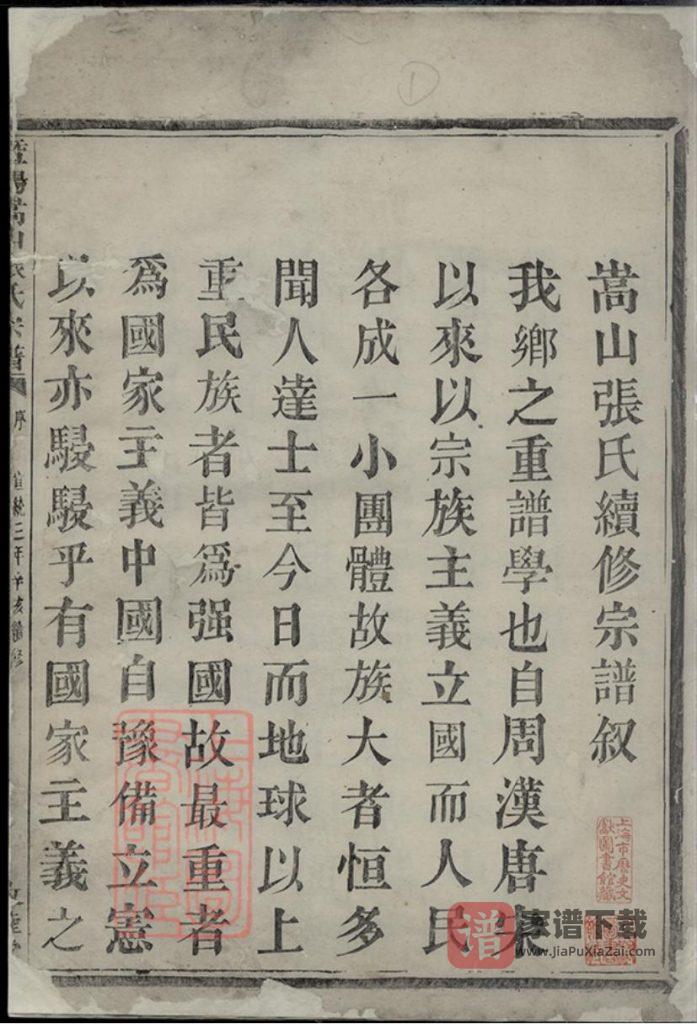 嵩山張氏續修宗譜叙
我鄉之重譜學也自周漢唐宋
以來以宗族主義立國而人民
各成一小團體故族大者恒多
聞人達士至今日而地球以上
重民族者皆爲强國故最重者
爲國家主義中國自豫備立憲
以來亦駸駸乎有國家主義之
陽嵩山張氏宗譜
序
宣統三年辛亥續修
上海市歷史文
獻圖書館藏
譜
家谱下载
www.JiaPuXiaZai.com
1